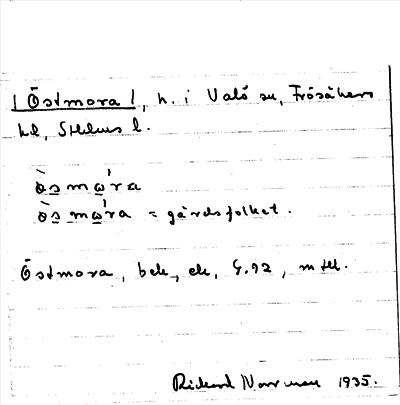 [Östmora], h. i Valö sn, Frösåkers
hd, Sthlms l.
ò̀s mω´ra
ò̀s mω´ra = gårdsfolket.
Östmora, bek., ek, G.92, mtl.
Rickard Norrman 1935.